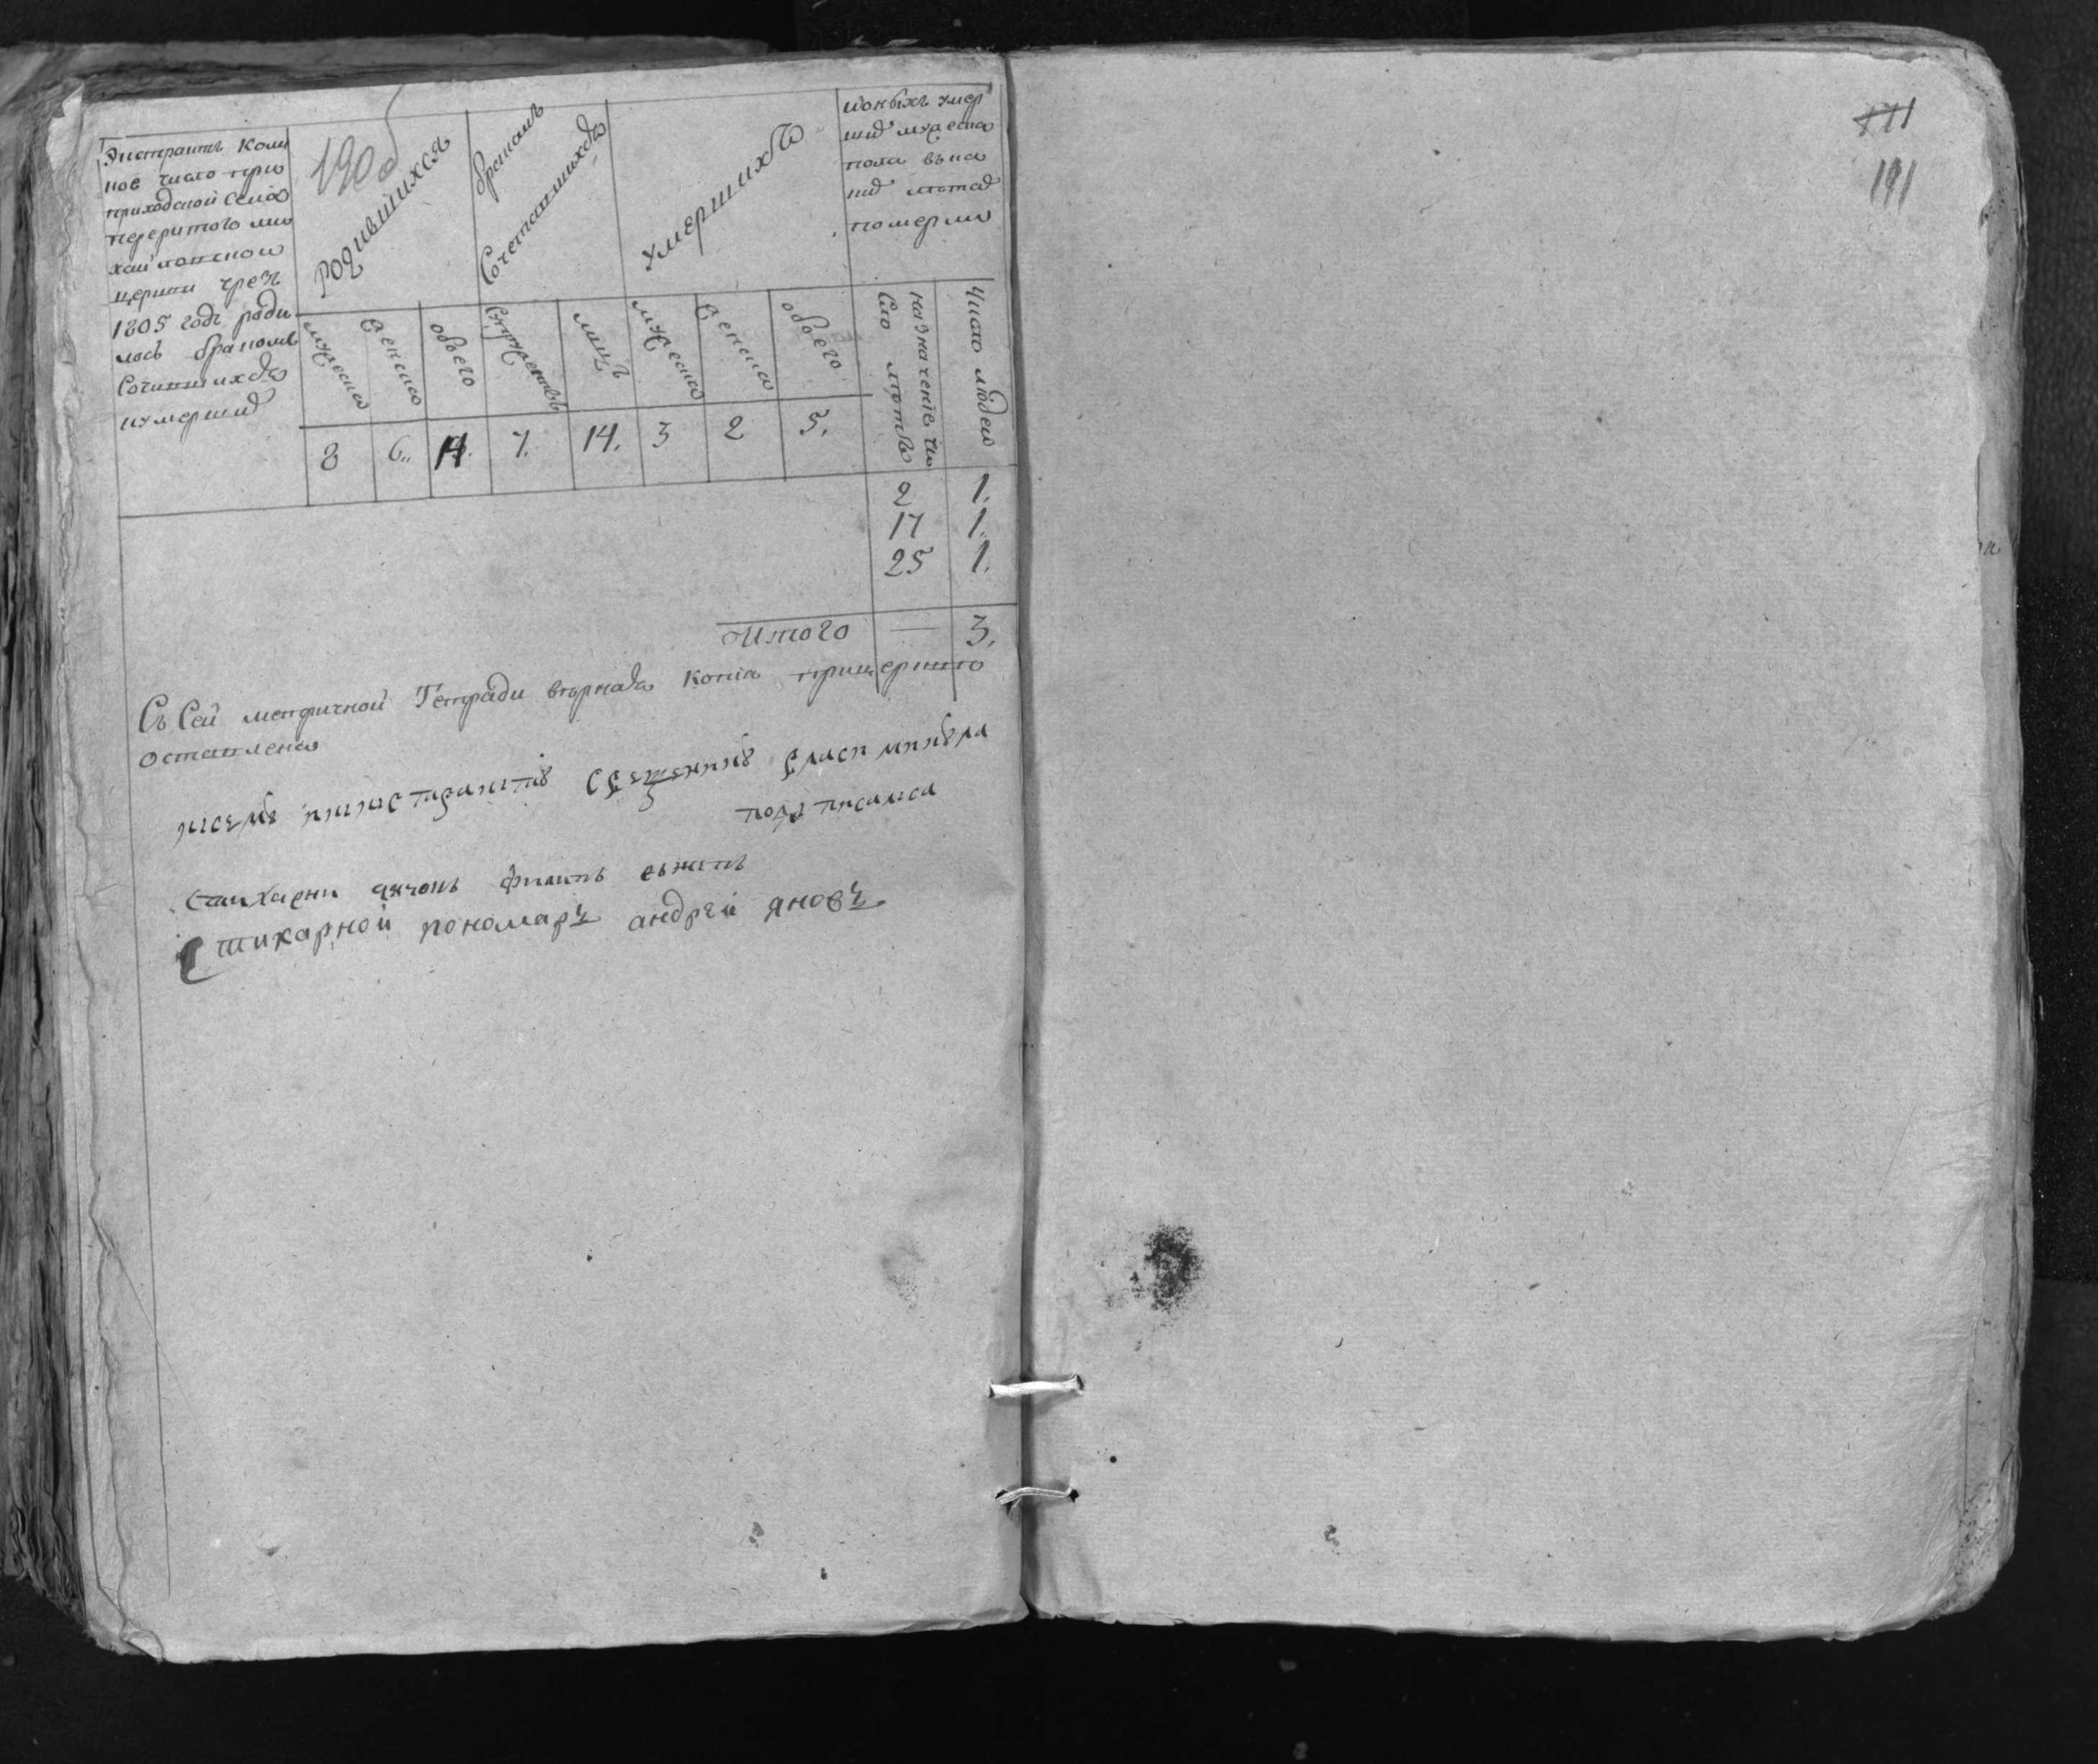 Экстрактъ коли
кое число при
приходской села
перерытого ми
хайловской
церкви чрезъ
1805 годъ роди
лось бракомъ
Сочитавшихся
и умершихъ
190об
родившихся
бракомъ
Сочетавшихся
умершихъ
и оныхъ умер
шихъ мужеска
пола въ ка
кихъ летахъ
померли
мужеска
женска
обоего
супружествъ
лицъ
мужеска
женска
обоего
назначение чи
сло летъ
Число людей
8 6. 14. 7. 14. 3 2 5.
2 1.
17 1.
25 1.
Итого — 3.
Съ Сей метричной Тетради верная копия при церкви
оставлена
подписался
Стихарни дячокъ Филипъ
Стихарной пономарь андрей яновъ
171
191